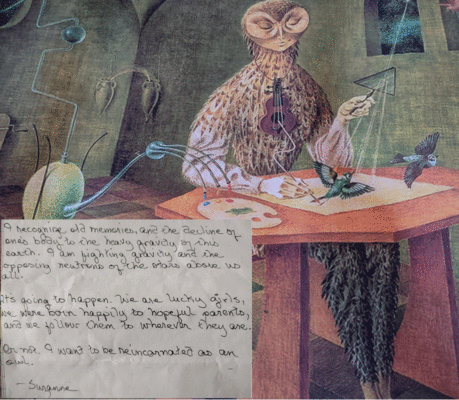 I recognize old memories, and the decline of
one's body to the heavy gravity of this
earth. I am fighting gravity and the
opposing neutrons of the stars above us
all.
Its going to happen. We are lucky girls,
we were born happily to hopeful parents,
and we follow them to wherever they are.
Or not. I want to be reincarnated as an
owl.
- Suzanne